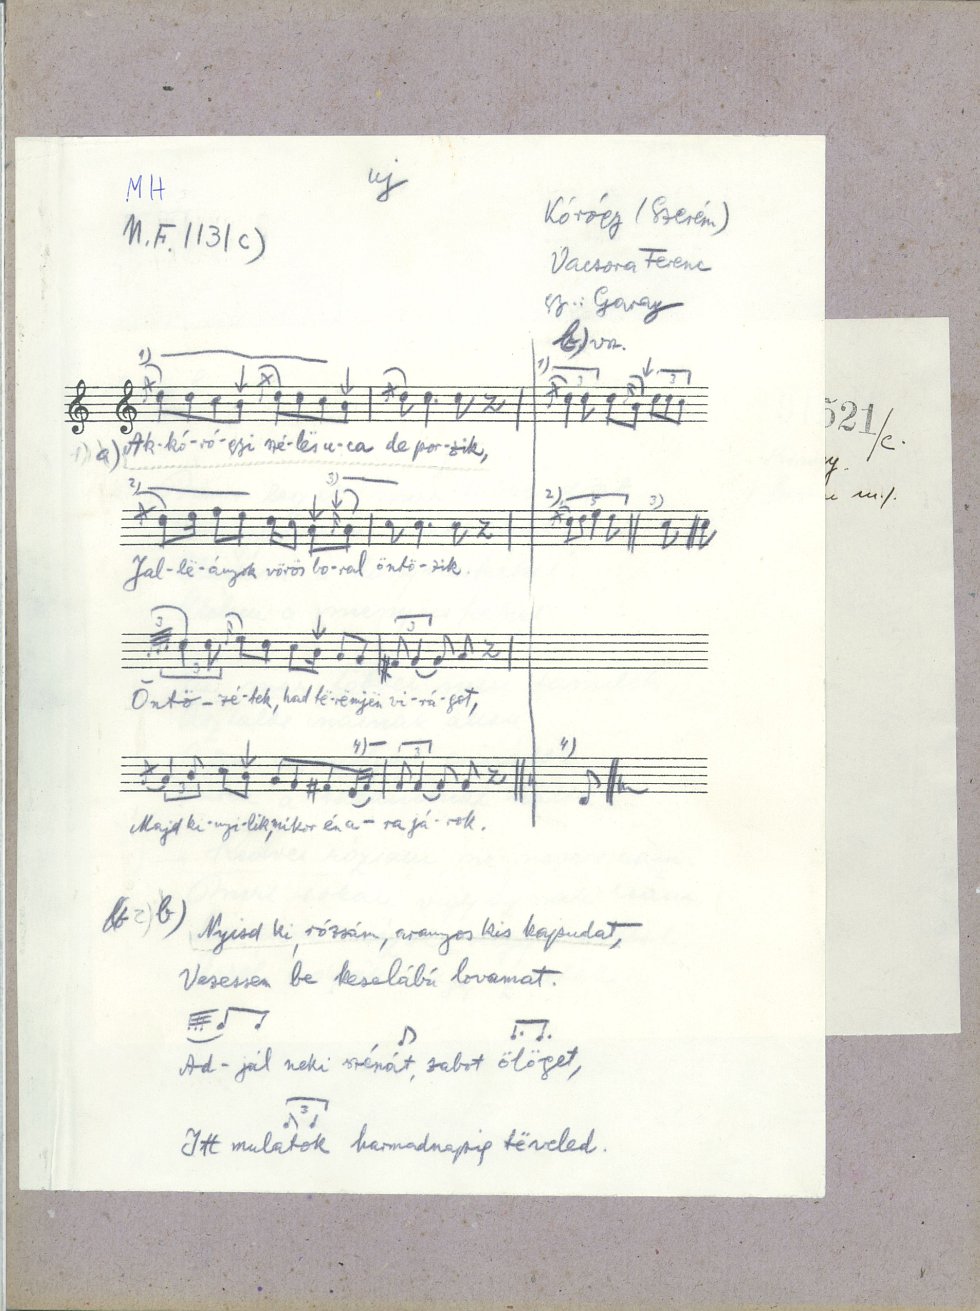 uj
MH
M.F. 1131 c)
Kórógy (Szerém)
Vacsora Ferenc
gy.: Garay
b) vsz.
1)
3
3
a) Ak-kó-ró-gyi szé-lës u-ca de por-zik,
2)
3)
2)
3
3)
Jal-lë-ányok vörös bo-ral öntö-zik.
3
3
3
Öntö-zé-tek, had tërëmjën vi-rá-got,
4)
3
3
4)
Majd ki-nyi-lik, mikor én a-ra já-rok.
b) Nyisd ki, rózsám, aranyos kis kapudat,
Vezessem be keselábú lovamat.
Ad-jál neki szénát, zabot ölöget,
3
Itt mulatok harmadnapig tëveled.
521/c.